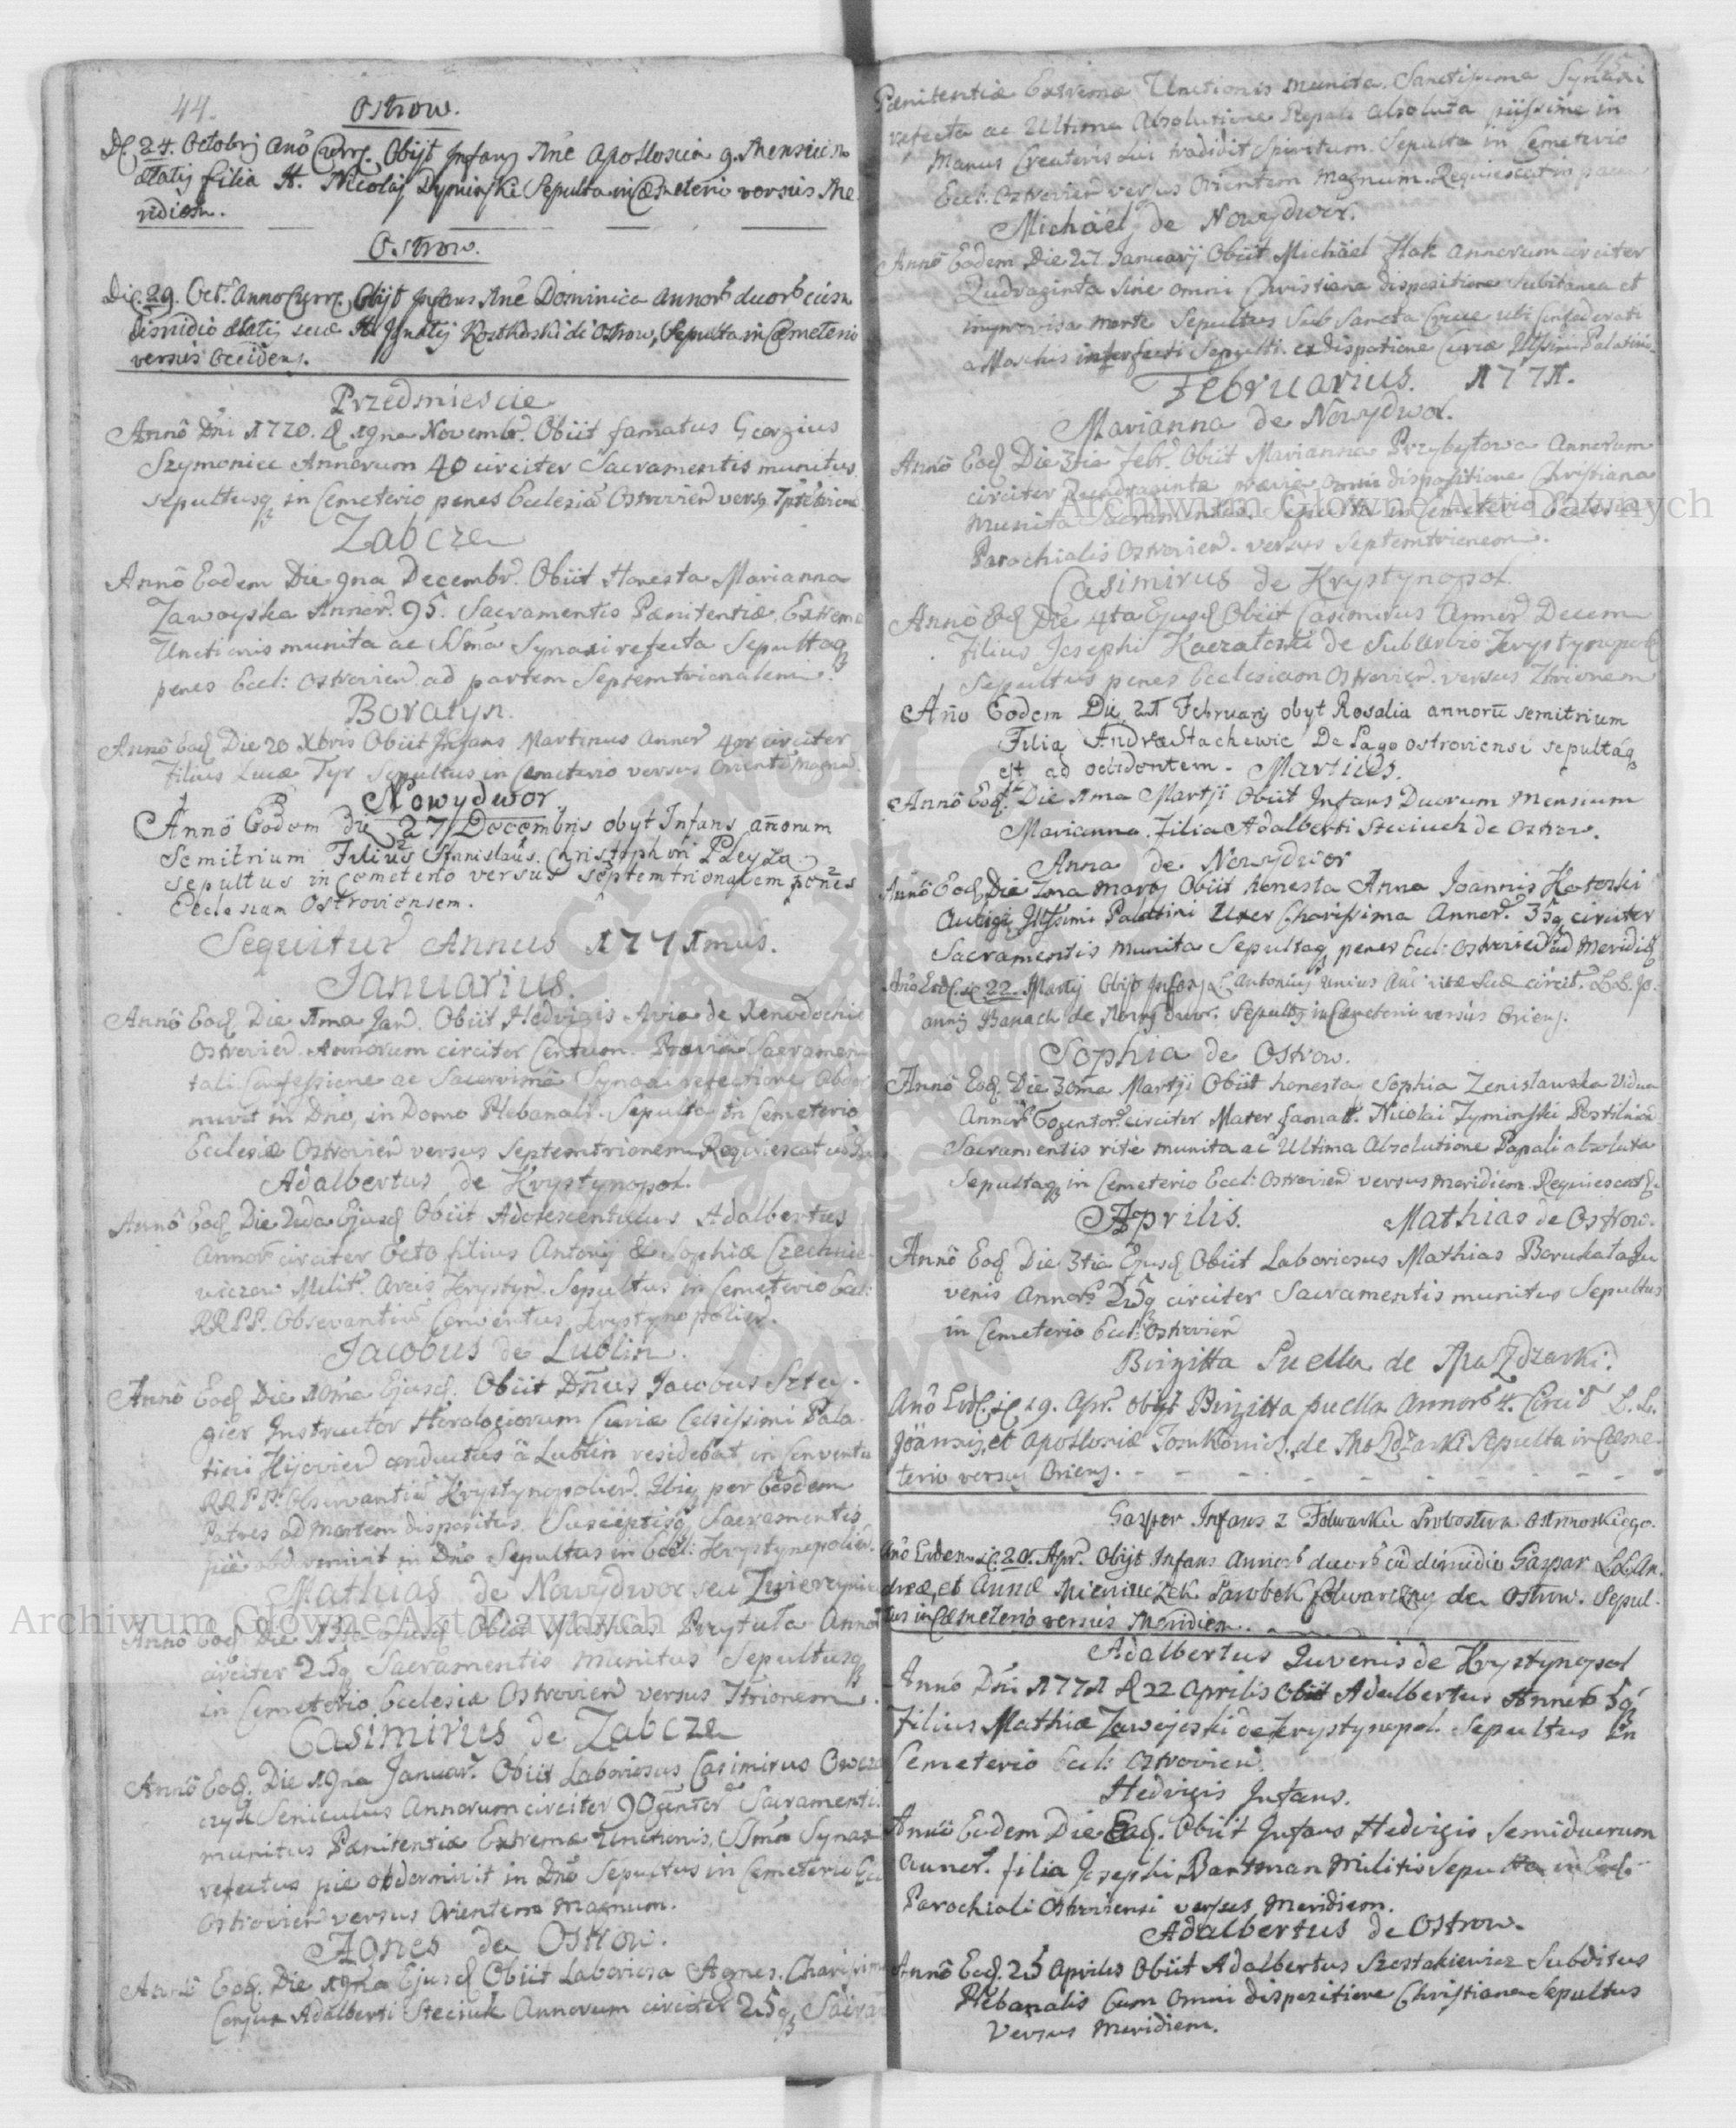 44.
Ostrow.
D. 24. Octobrj Anô Curr. Obijt Infans Nne Apollonia 9. Mensium
Ætatis filia H. Nicolaj Dyminski Sepulta in Cæmeterio versus Me
ridiem.
Ostrow.
Die 29. Oct. Anno Curr. Obijt Infans Nne Dominica annor. duor. cum
dimidio ætatis suæ Ignatij Kostkoski de Ostrow, Sepulta in Cæmeterio
versus Occidens.
Przedmiescie
Annô Dni 1770. d 19na Novembr. Obiit famatus Georgius
Szymonicc Annorum 40 circiter Sacramentis munitus
sepultusq in Cemeterio penes Ecclesiã Ostrovien vers.
Zabcze
Annô Eodem Die 9na Decembr. Obiit Honesta Marianna
Zawoyska Annor. 95. Sacramentis Pænitentiæ, Extremæ
Unctionis munita ac SSmã Synaxi refecta Sepultaq
penes Eccl: Ostrovien ad partem Septemtrionalem.
Boratyn.
Annô Eod Die 20 Xbris Obiit Infans Martinus Annor 4or circiter
filius Lucæ Tyr Sepultus in Cemeterio versus Orientẽ Magnũ.
Nowydwor
Annô Eodem Die 27 Decembris obyt Infans añorum
Semitrium Filius Stanislaus Christophori Pleyza
sepultus in Cemeterio versus septemtrionalem penes
Ecclesiam Ostroviensem.
Sequitur Annus 1771mus.
Januarius.
Annô Eod Die 1ma Jan. Obiit Hedvigis Avia de Xenodochio
Ostrovien Annorum circiter Centum. Præviâ Sacramen
tali Confessione ac Sacerrimâ Synaxi refectione Obdor
mivit in Dno, in Domo Plebanali. Sepulta in Cemeterio
Ecclesiæ Ostrovien versus Septemtrionem. Requiescat
Adalbertus de Krystynopol.
Annô Eod Die 2da Ejusd Obiit Adolescentulus Adalbertus
Annor circiter Octo filius Antonij & Sophiæ Czechnie
wiczow Milit. Arcis Krystyn. Sepultus in Cemeterio Eccl:
RRPP. Observantiũ Conventus Krystynopolien.
Jacobus de Lublin.
Annô Eod Die 10ma Ejusd. Obiit Dnus Jacobus Sztey-
gier Instructor Horologiorum Curiæ Celsissimi Pala-
tini Kijovien conductus â Lublin residebat in Conventu
RRPP. Observantiũ Krystynopolien. Ibiq per Eosdem
Patres ad Mortem dispositus. Susceptisq Sacramentis
piè obdormivit in Dno Sepultus in Eccl: Krystynopolien.
Mathias de Nowydwor seu Zwierzyniec
Annô Eod Die Ejusd Obiit Mathias Przytuła Anno
circiter 25q Sacramentis munitus Sepultusq
in Cemeterio Ecclesiæ Ostrovien versus 7trionem.
Casimirus de Zabcze
Annô Eod. Die 19na Januar. Obiit Laboriosus Casimirus Owcza
czyk Seniculus Annorum circiter 90 Sacramenti
munitus Pænitentiæ Extremæ Unctionis. SSmã Synax
refectus pie obdormivit in Dno Sepultus in Cemeterio Ecc
Ostrovien versus Orientem Magnum.
Agnes de Ostrow.
Annô Eod. Die 19na Ejusd Obiit Laboriosa Agnes. Charissima
Conjux Adalberti Steciuk Annorum circiter 25q Sacram
45
Pænitentiæ Extremæ Unctionis munita. Sanctissima Synaxi
refecta ac Ultima Absolutione Papali absoluta piissime in
Manus Creatoris sui tradidit Spiritum. Sepulta in Cemeterio
Eccl: Ostrovien versus Orientem Magnum. Requiescat in pace
Michäel de Nowydwor.
Annô Eodem Die 27. Januarij Obiit Michäel Hak Annorum circiter
Qudraginta sine omni Christiana dispositione subitanea et
improvisa morte Sepultus sub Sancta Cruce ubi Confederati
a Moschis interfecti Sepulti. ex dispositione Curiæ Illssimi Palatini.
Februarius. 1771.
Marianna de Nowydwor.
Annô Eod Die 3tia Febr. Obiit Marianna Przybyłowa Annorum
circiter Quadraginta prævia omni dispositione Christiana
Munita Sacramentis. Sepulta in Cemeterio Ecclesiæ
Parochialis Ostrovien. versus Septemtrionem.
Casimirus de Krystynopol.
Annô Eod Die 4ta Ejusd Obiit Casimirus Annor Decem
filius Josephi Kaczałoski de Suburbio Krystynopol
Sepultus penes Ecclesiam Ostrovien. versus 7trionem
Año Eodem Die 21 Februarij obyt Rosalia annorũ semitrium
Filia Andreæ Stachewic De Pago ostroviensi sepultaq
est ad occidontem. Martius.
Annô Eod. Die 1ma Martji Obiit Infans Duorum Mensium
Marianna. filia Adalberti Steciuch de Ostrow.
Anna de Nowydwor
Annô Eod. Die 7ma Martij Obiit honesta Anna Joannis Kotoski
Aurigæ Illssimi Palatini Uxor Charissima Annor. 35q circiter
Sacramentis munita Sepultaq penes Eccl: Ostrovien ad Meridiẽ
Año Eod. d. 22. Martij Obijt Infans L. Antonius Unius Añi vitæ suæ circit. LL. Jo-
annis Banach de Nowydwor. Sepultus in Cæmeterio versus Oriens.
Sophia de Ostrow.
Annô Eod Die 30ma Martji Obiit honesta Sophia Zenislawska Vidua
Annor. circiter Mater famati. Nicolai Zyminski Postilion
Sacramentis ritè munita ac Ultima Absolutione Papali absoluta
Sepultaq in Cemeterio Eccl: Ostrovien versus Meridiem. Requiescat
Aprilis. Mathias de Ostrow.
Annô Eod Die 3tia Ejusd Obiit Laboriosus Mathias Borukała Ju
venis Annor. 25q circiter Sacramentis munitus Sepultus
in Cemeterio Eccl: Ostrovien
Birgitta Puella de
Anô Eod. d. 19. Apr. obijt Birgitta puella Annor. 4. Circit. L.L.
Jöannis, et Apolloniæ Tomkowicz, de Sepulta in Cæme-
terio versus Oriens.
Gasper Infans z Folwarku Probostwa Ostrowskiego.
Anô Eodem d. 20. Apr. Obijt Infans Annor. duor. cũ dimidio Gaspar LL. An-
dreæ, et Annæ Nieniuczek Parobek folwarczny de Ostrow. Sepul-
tus in Cæmeterio versus Meridiem.
Adalbertus Juvenis de Krystynopol
Annô Dni 1771 d 22 Aprilis Obiit Adalbertus Annor.
Filius Mathiæ Zawojeski de Krystynopol. Sepultus in
Cemeterio Eccl: Ostrovien.
Hedvigis Infans.
Annô Eodem Die Ead. Obiit Infans Hedvigis Semiduorum
Annor. filia Josephi Bartman Militis Sepulta in Eccl:
Parochiali Ostroviensi versus Meridiem.
Adalbertus de Ostrow.
Annô Eod. 25 Aprilis Obiit Adalbertus Szostakiewicz Subditus
Plebanalis Cum omni dispositione Christiana Sepultus
Versus Meridiem.
Archiwum Główne Akt Dawnych
Archiwum Główne Akt Dawnych